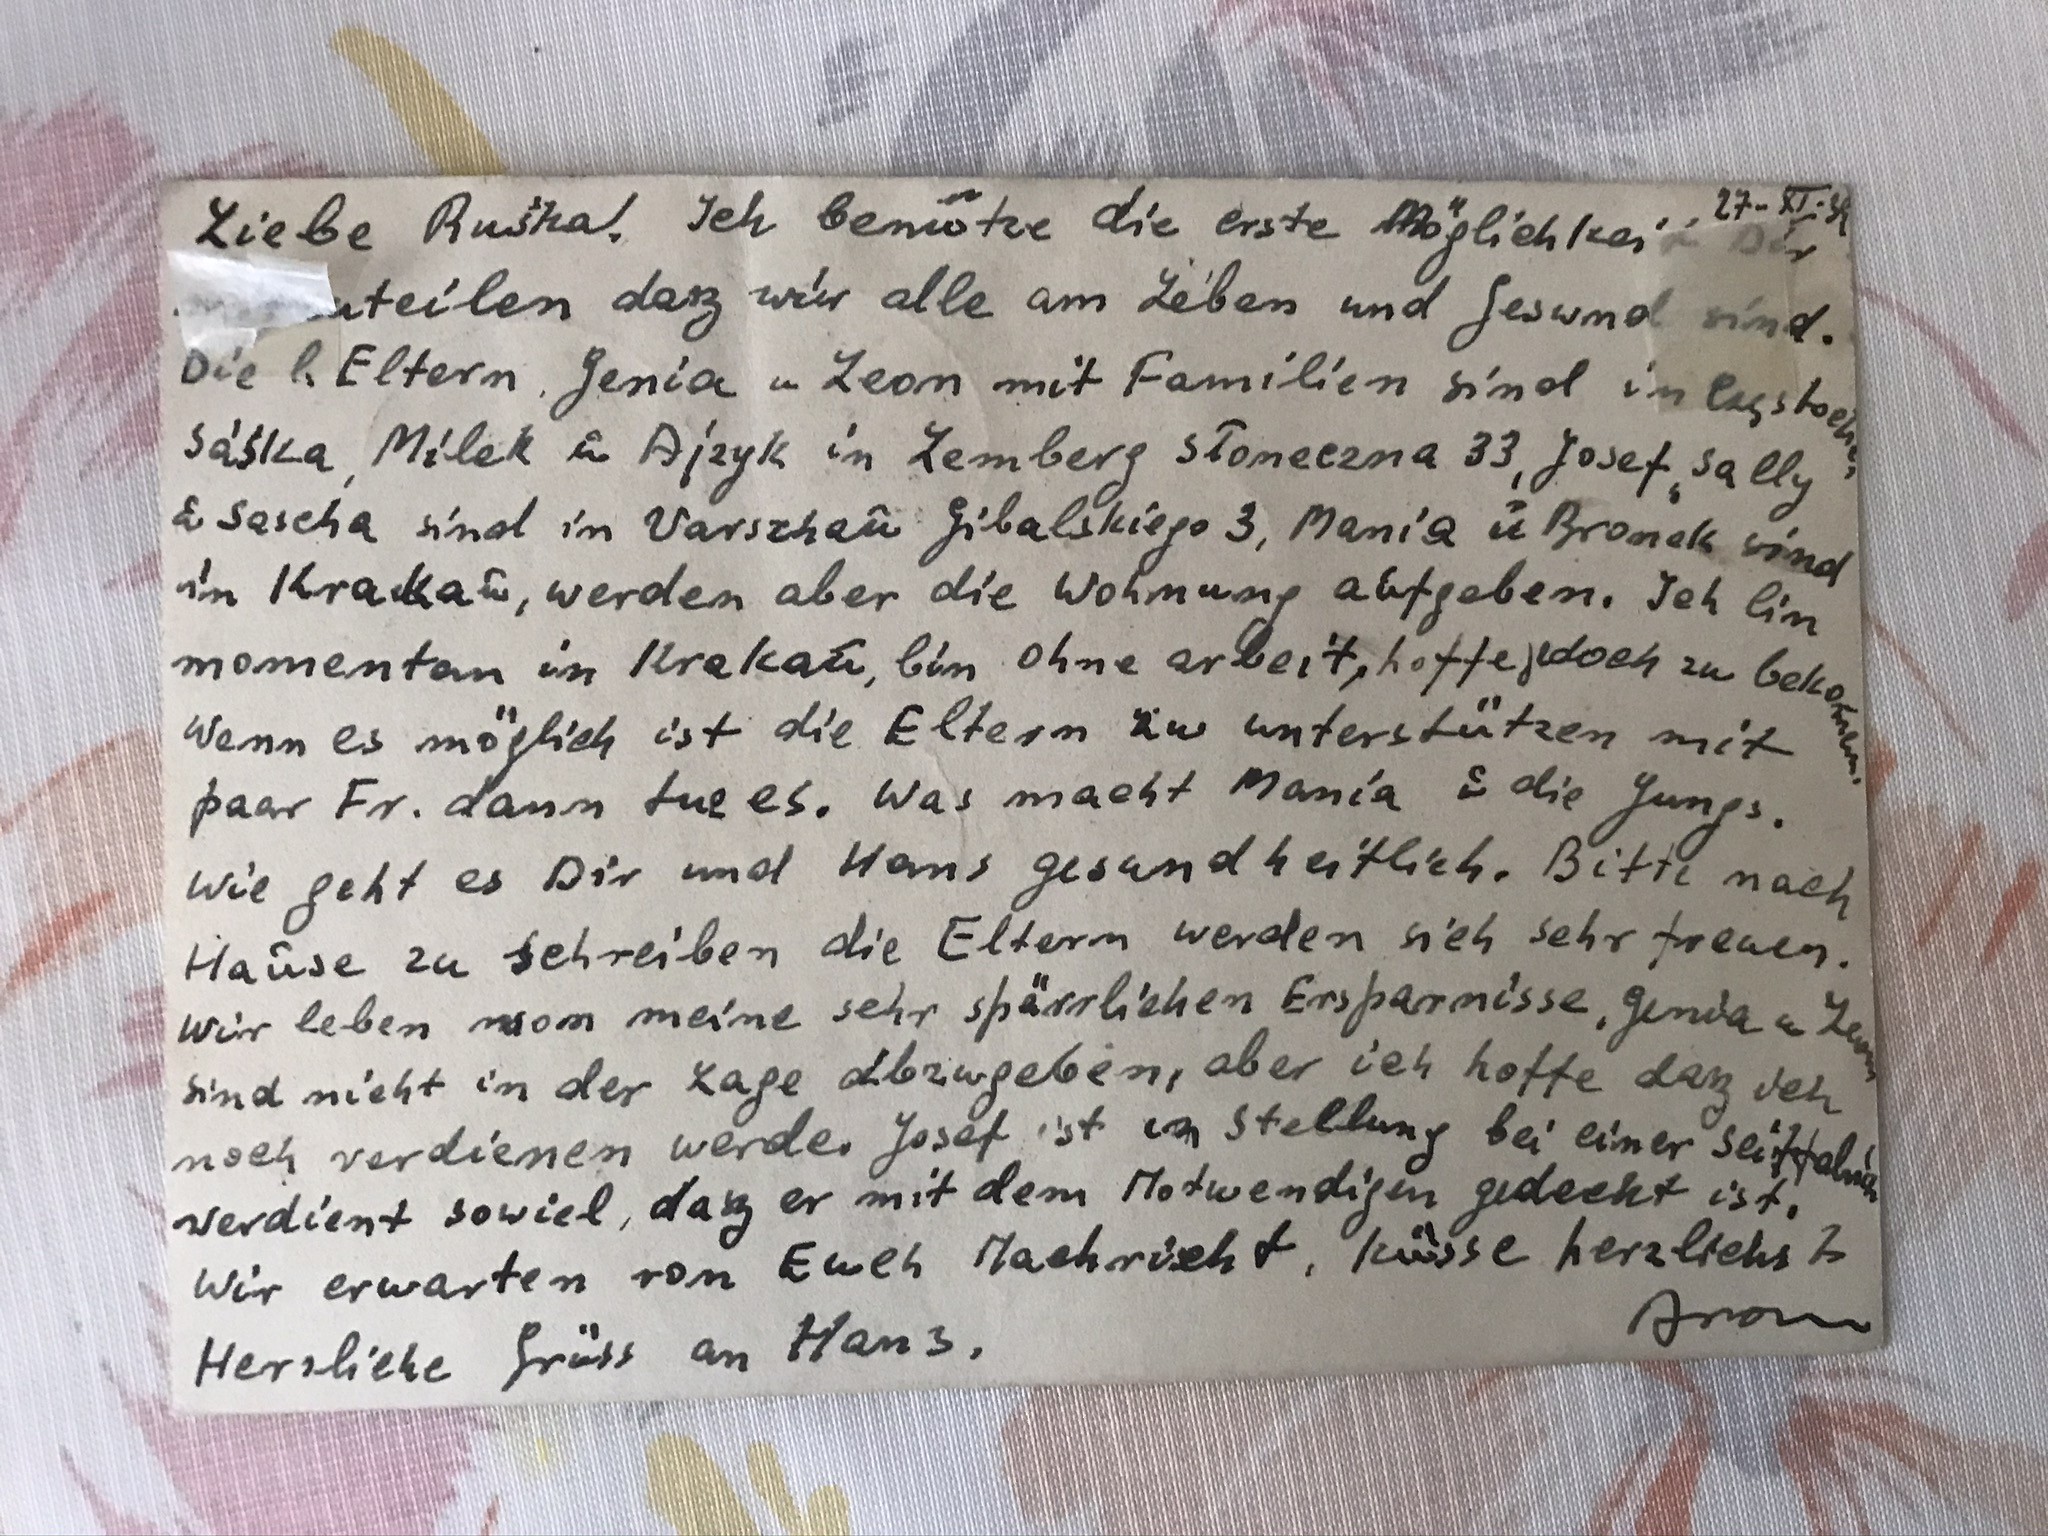 27-XI-39
Liebe Ruśka! Ich benütze die erste Möglichkeit Dir
mitzuteilen dasz wir alle am Leben und Gesund sind.
Die l. Eltern, Genia u Leon mit Familien sind in
Saśka, Milek u Ajzyk in Lemberg Słoneczna 33, Josef, Sally
u Sascha sind in Varszhau Gibalskiego 3, Mania u Bronek sind
in Krakau, werden aber die Wohnung aufgeben. Ich bin
momentan in Krakau, bin ohne arbeit, hoffe jedoch zu bekommen.
Wenn es möglich ist die Eltern zu unterstützen mit
paar Fr. dann tue es. Was macht Mania u die Jungs.
Wie geht es Dir und Hans gesundheitlich. Bitte nach
Hause zu schreiben die Eltern werden sich sehr freuen.
Wir leben von meine sehr spärrlichen Ersparnisse, Genia u Leon
sind nicht in der Lage abzugeben, aber ich hoffe dasz ich
noch verdienen werde. Josef ist in Stellung bei einer
verdient soviel, dasz er mit dem Notwendigen gedeckt ist.
Wir erwarten von Euch Nachricht, küsse herzlichst
Aron
Herzliche Grüss an Hans.